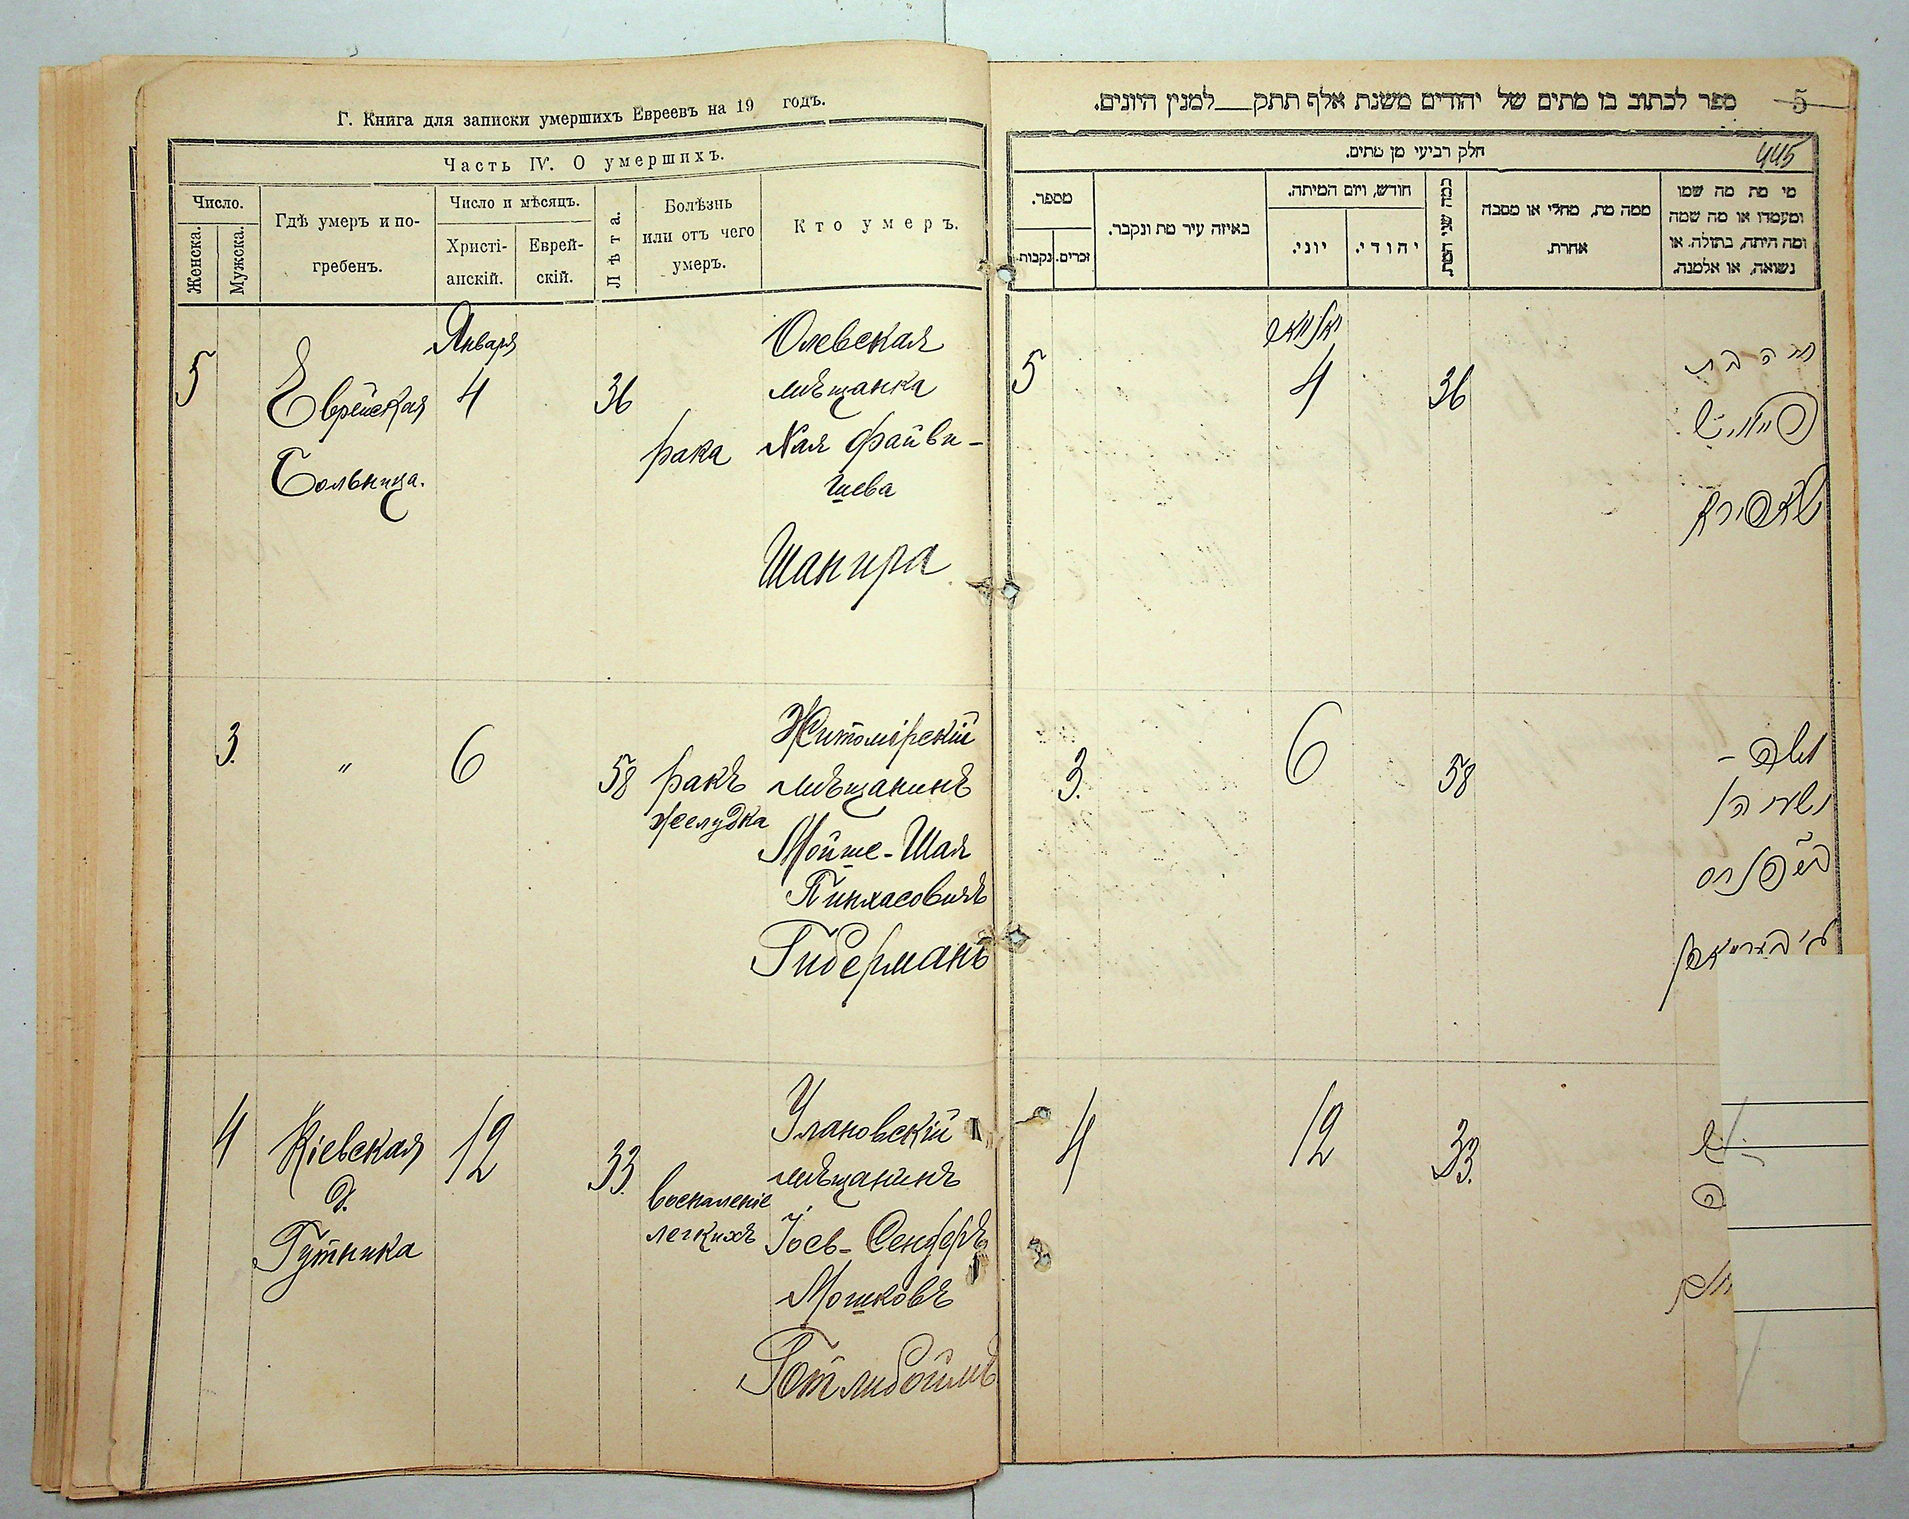 Г. Книга для записки умершихъ Евреевъ на 19 годъ.
Часть IV. О умершихъ.
Число.
Женска.
Мужска.
Гдѣ умеръ и по-
гребенъ.
Число и мѣсяцъ.
Христі-
анскій.
Еврей-
скій.
Лѣта.
Болѣзнь
или отъ чего
умеръ.
Кто умеръ.
5
Еврейская
больница.
Января
4
36
рака
Олевская
мѣщанка
Хая Файви-
шева
Шапира
3.
"
6
58
ракъ
желудка
Житомірскій
мѣщанинъ
Мойше-Шая
Пинхасовичъ
Гидерманъ
4
Кіевская
д.
Гутника
12
33.
воспаленіе
легкихъ
Улановскій
мѣщанинъ
Іось-Сендеръ
Мошковъ
Готлибоймъ
ספר לכתוב בו מתים של יהודים משנת אלף תתק למנין היונים.
5
445
חלק רביעי מן מתים.
מספר.
נקבות.
זכרים.
באיזה עיר מת ונקבר.
חודש, ויום המיתה.
יוני.
יהודי.
כמה שני המת.
ממה מת, מחלי או מסבה
אחרת.
מי מת מה שמו
ומעמדו או מה שמה
ומה היתה, בתולה או
נשואה, או אלמנה.
5
יאנוואר
4
36
חי ה בת
פייוויש
שאפירא
3.
6
58
משה -
ישעי הו
4
12
33.